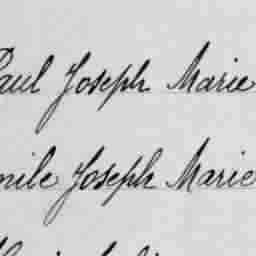 Paul Joseph Marie
mile Joseph Marie